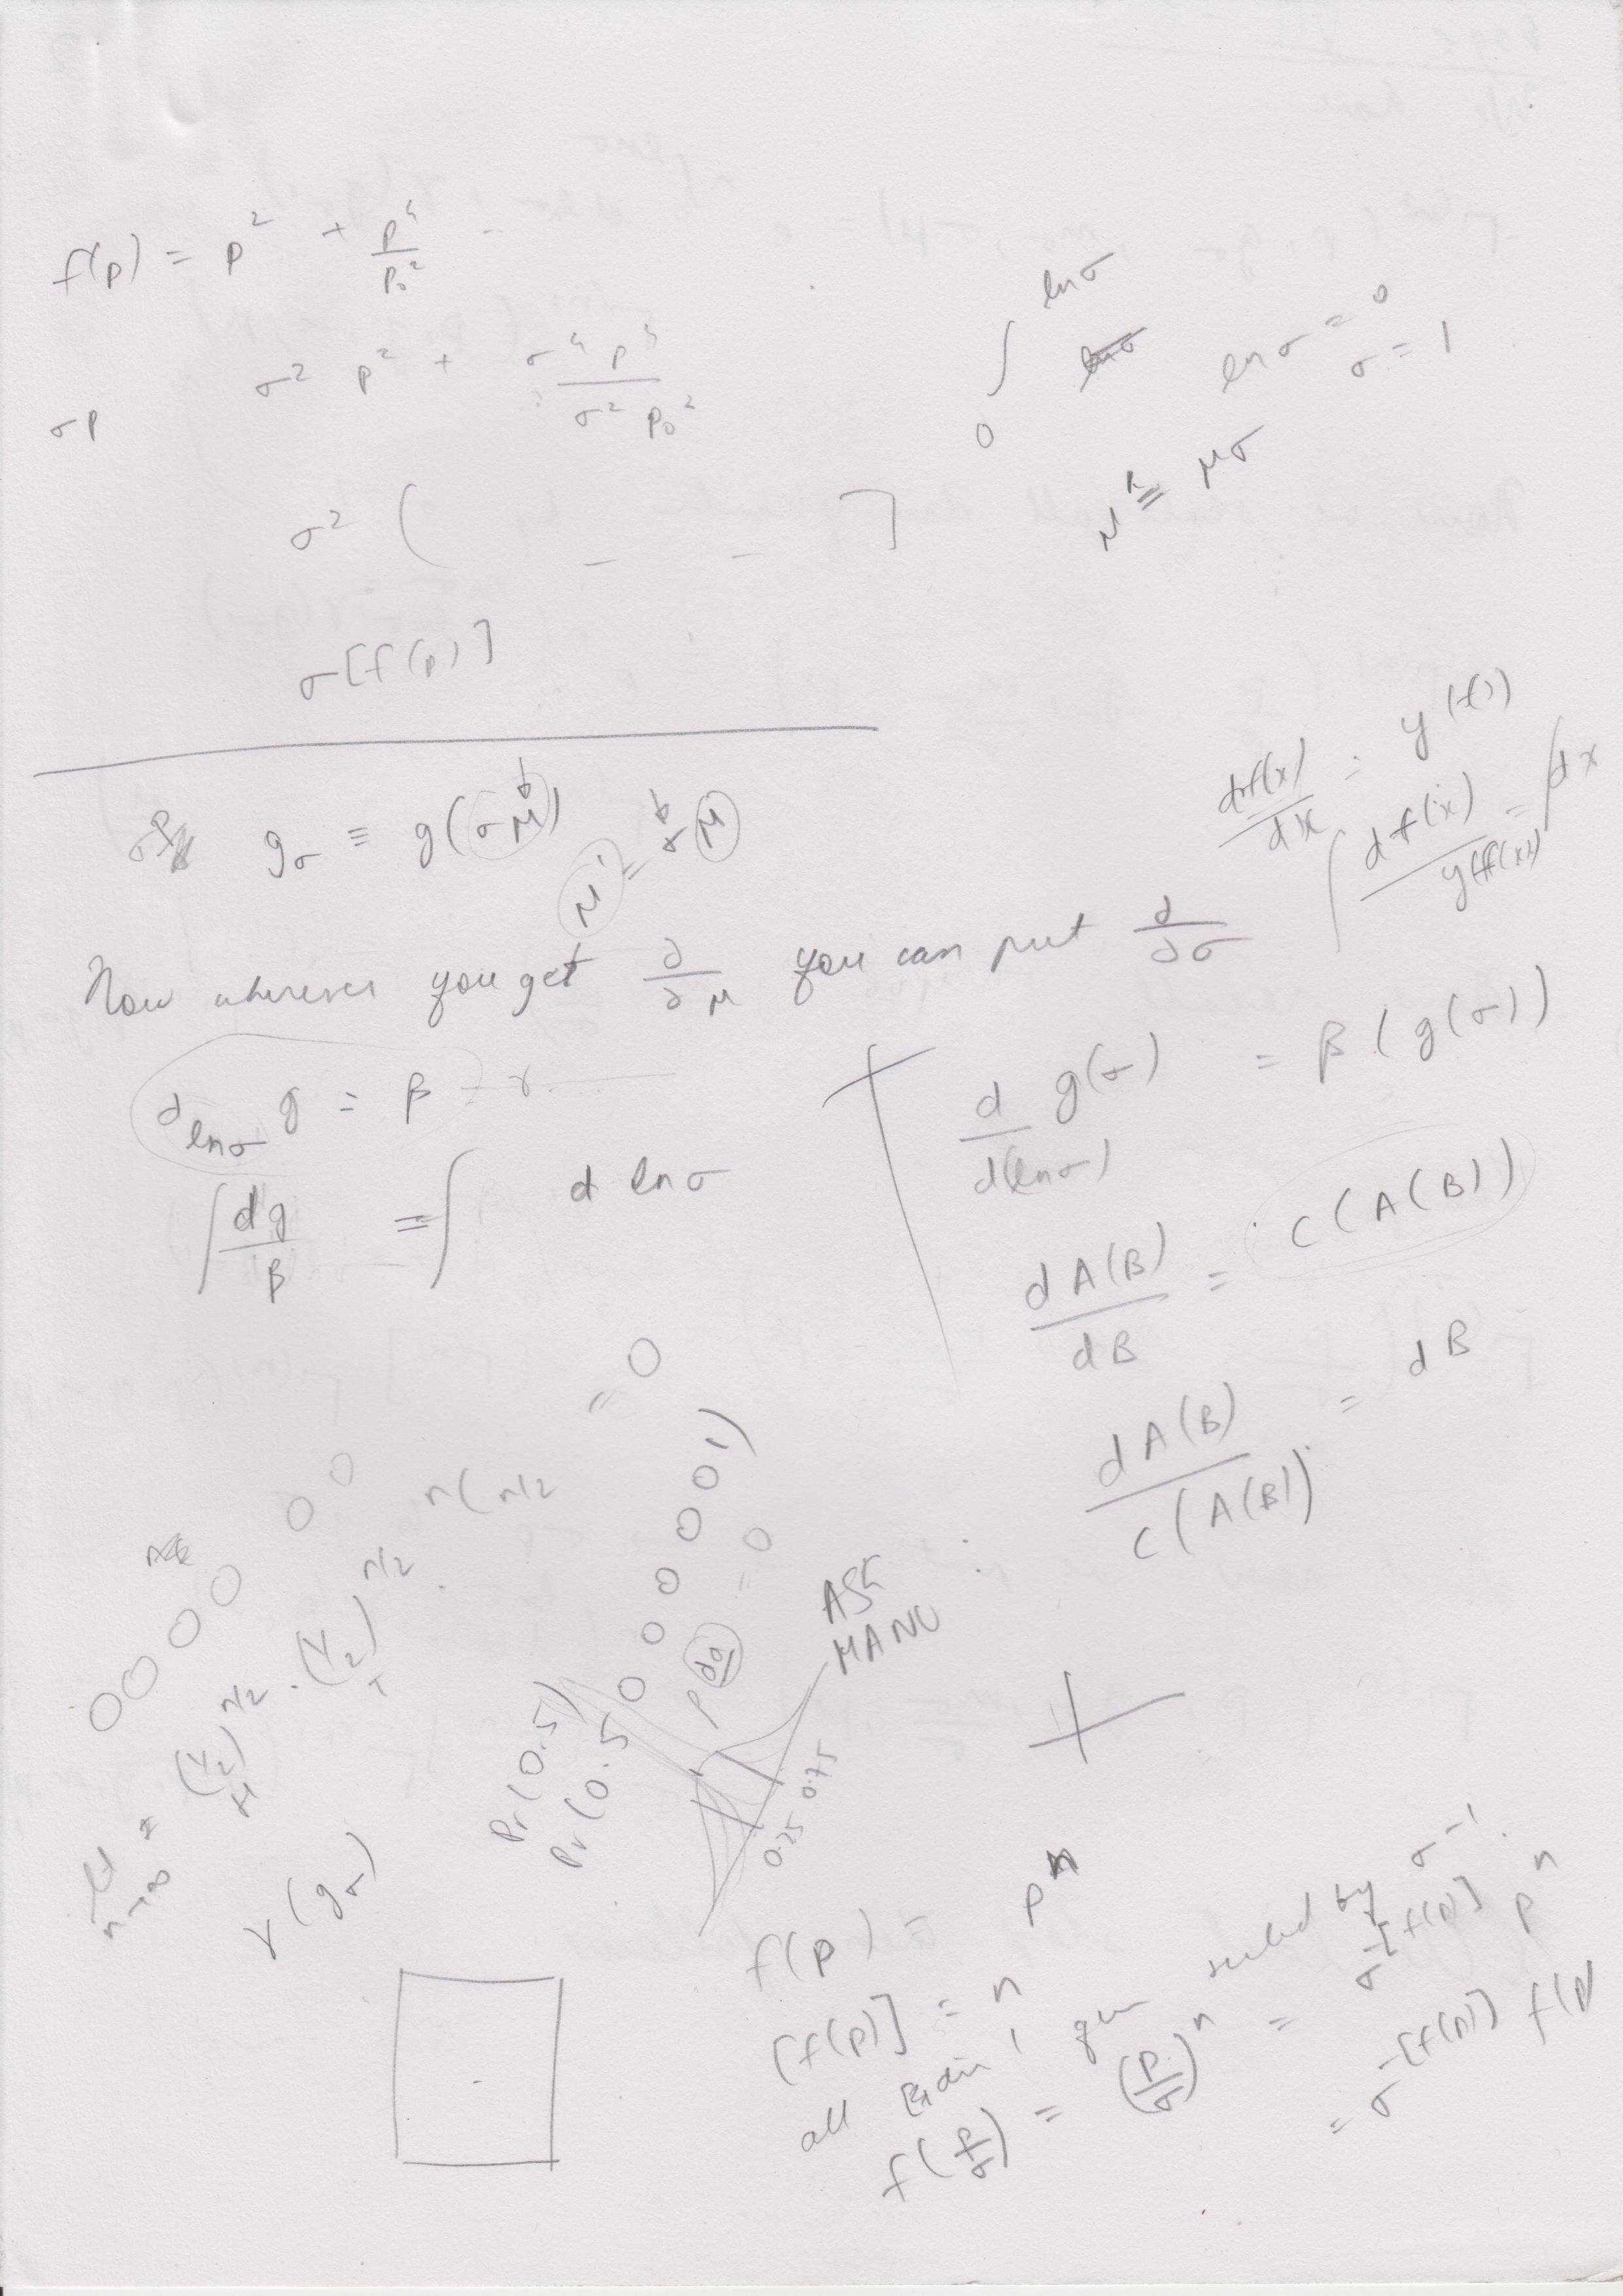 f(p) = p² + p⁴/p₀²
σp σ² p² + σ⁴ p⁴ / σ² p₀²
σ² ( _ _ ]
σ[f(p)]
∫ 0 ln σ
ln σ = 0
σ = 1
μ' ≡ μσ
g_σ ≡ g(σμ)
μ' = σμ
df(x)/dx = y(f)
∫ df(x)/y(f(x)) = ∫dx
Now wherever you get ∂/∂μ you can put ∂/∂σ
d_lnσ g = β - γ
∫ dg/β = ∫ d ln σ
d/d(lnσ) g(σ) = β(g(σ))
dA(B)/dB = C(A(B))
dA(B)/C(A(B)) = dB
= 0
0 0 0 0 0 0
n(n/2
lt n→∞ = (1/2)_H^n/2 . (1/2)_T^n/2
γ(g_σ)
Pr(0.5)
Pr(0.5 0 0 0 0 0 0 1)
P(dq) = 0
ASK
MANU
0.25 0.75
f(p) = pⁿ
[f(p)] = n
all dim gen scaled by σ⁻¹
f(p/σ) = (p/σ)ⁿ = σ^-[f(p)] pⁿ
= σ^-[f(p)] f(p)